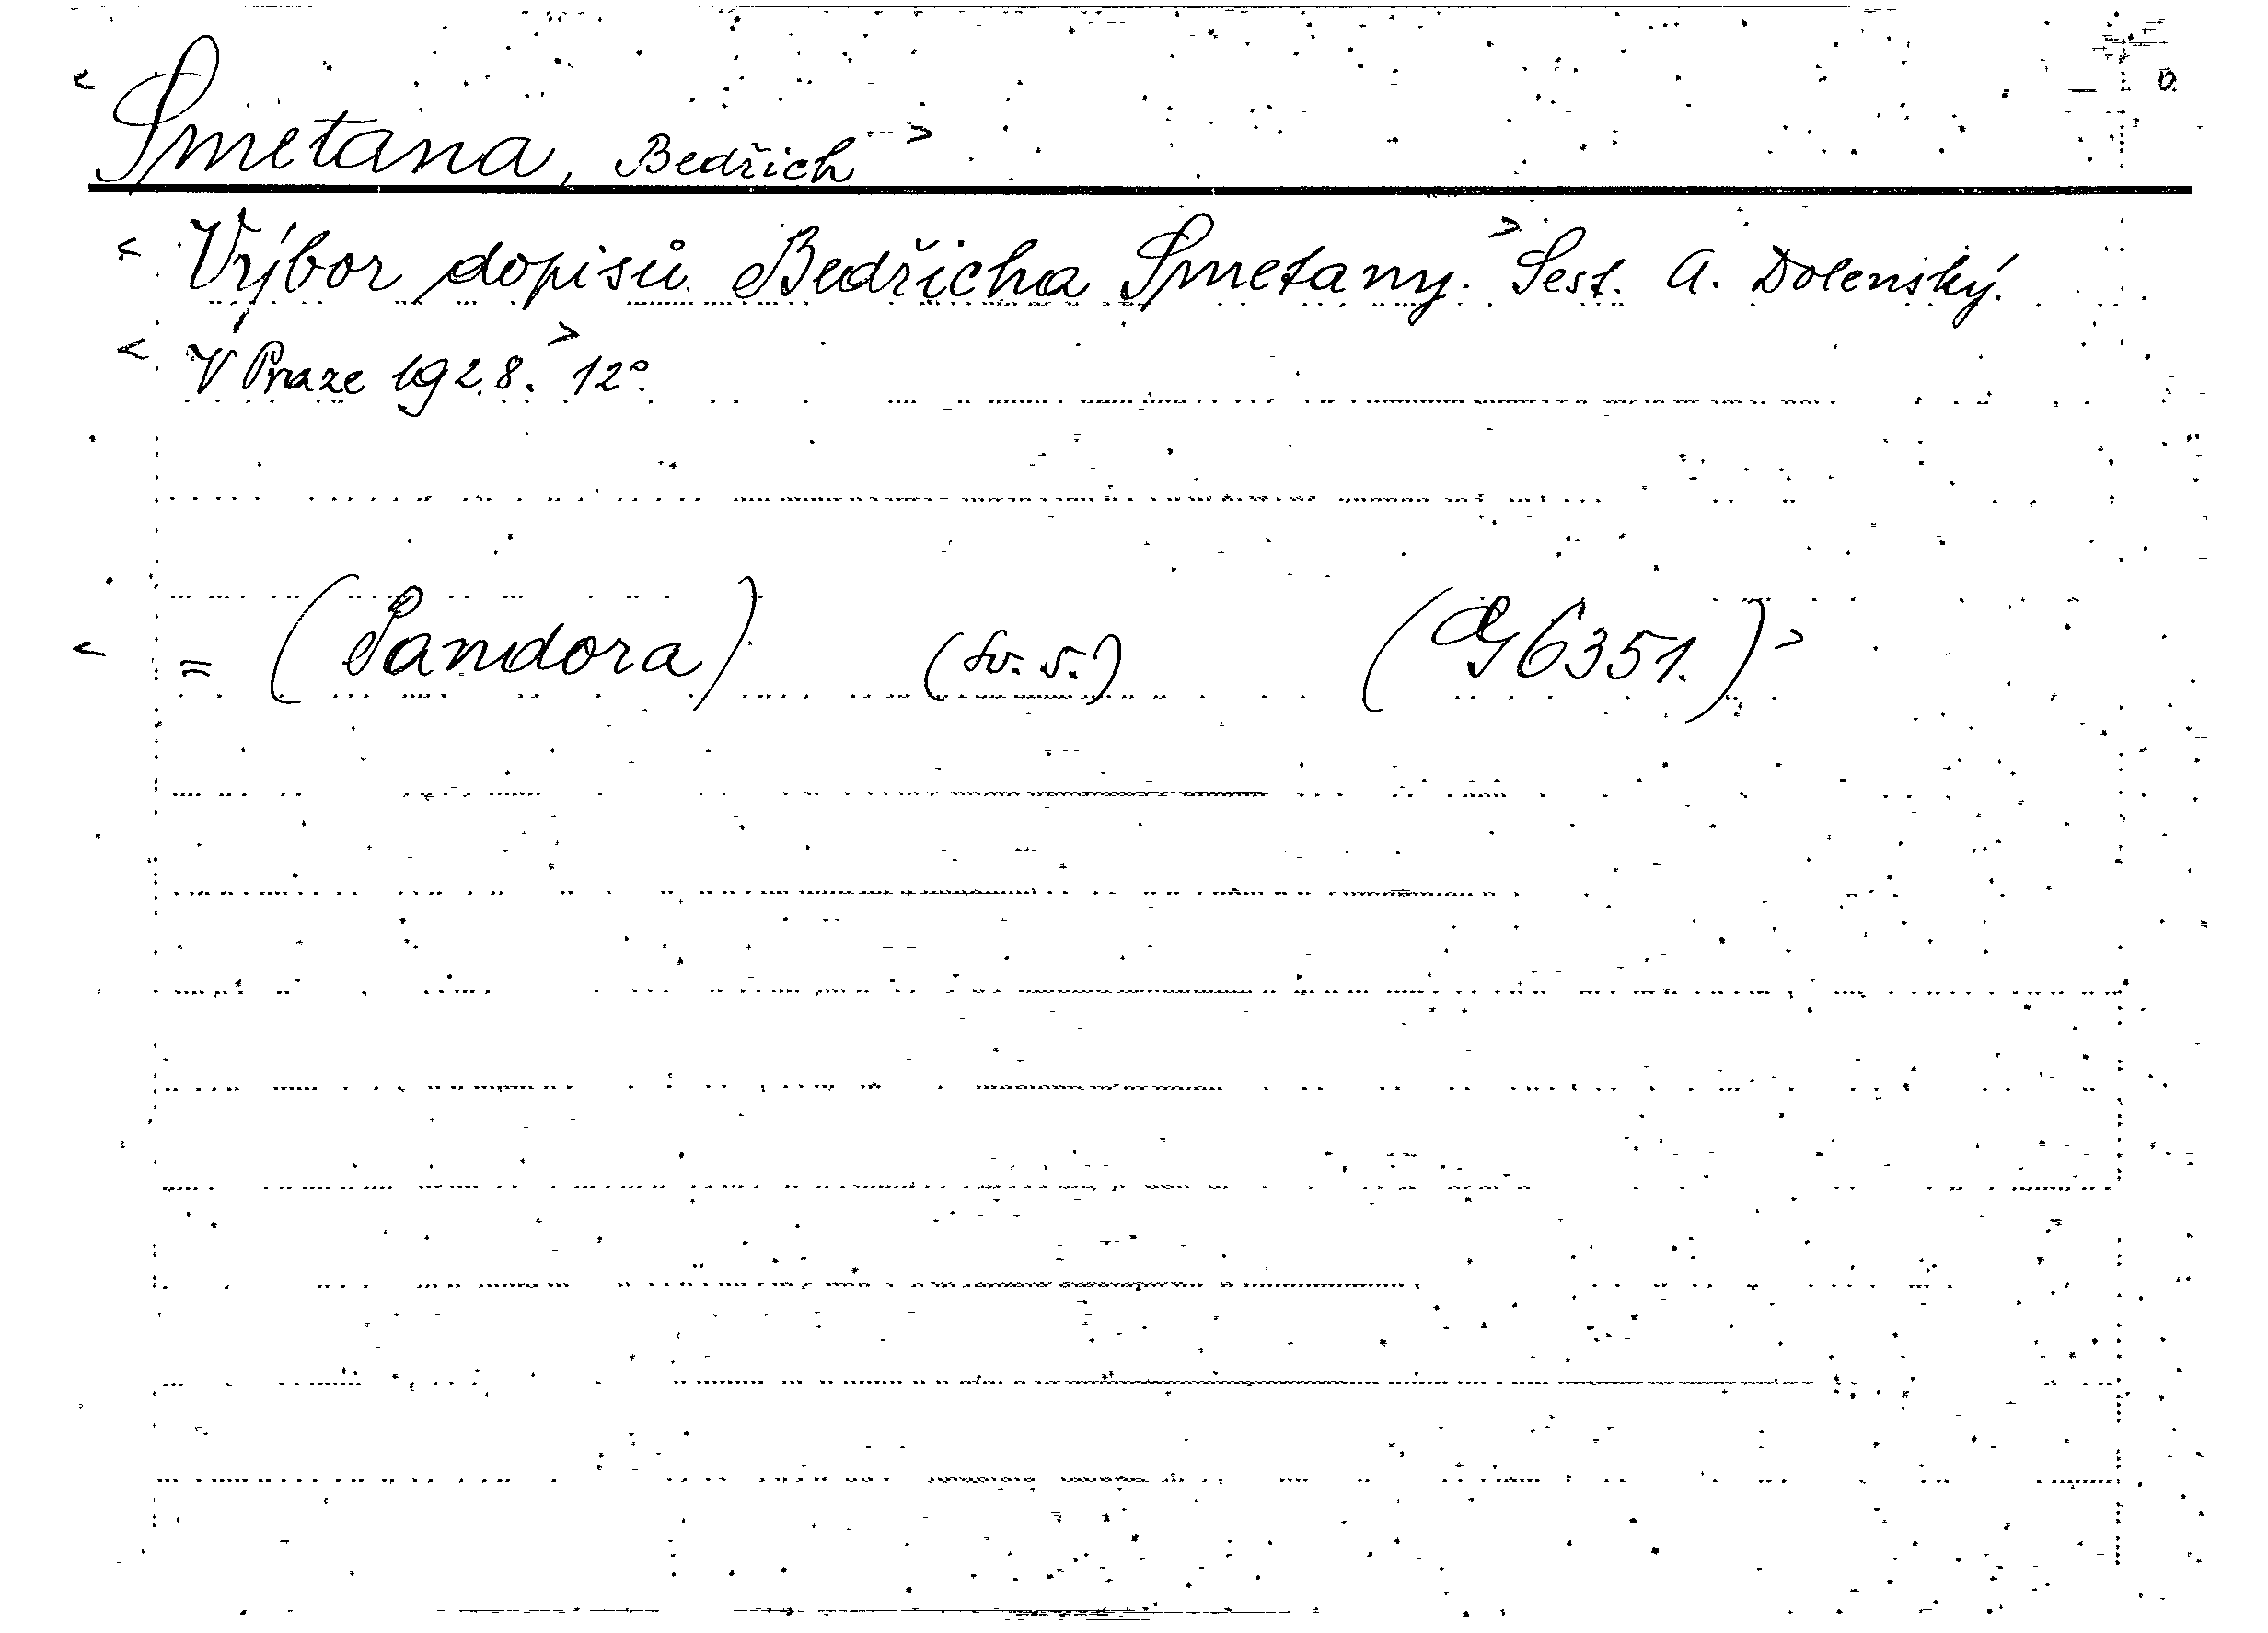 < Smetana, Bedřich >
< Výbor dopisů Bedřicha Smetany. > Sest. A. Dolenský.
< V Praze 1928. > 12°.
< = (Pandora) (Sv. 5.) (G 6351.) >